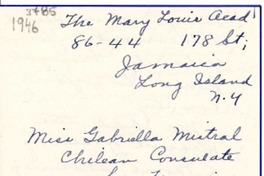 3485
1946
The Mary Louis Acad
86-44 178 St;
Jamaica
Long Island
N.Y
Miss Gabriella Mistral
Chilean Consulate